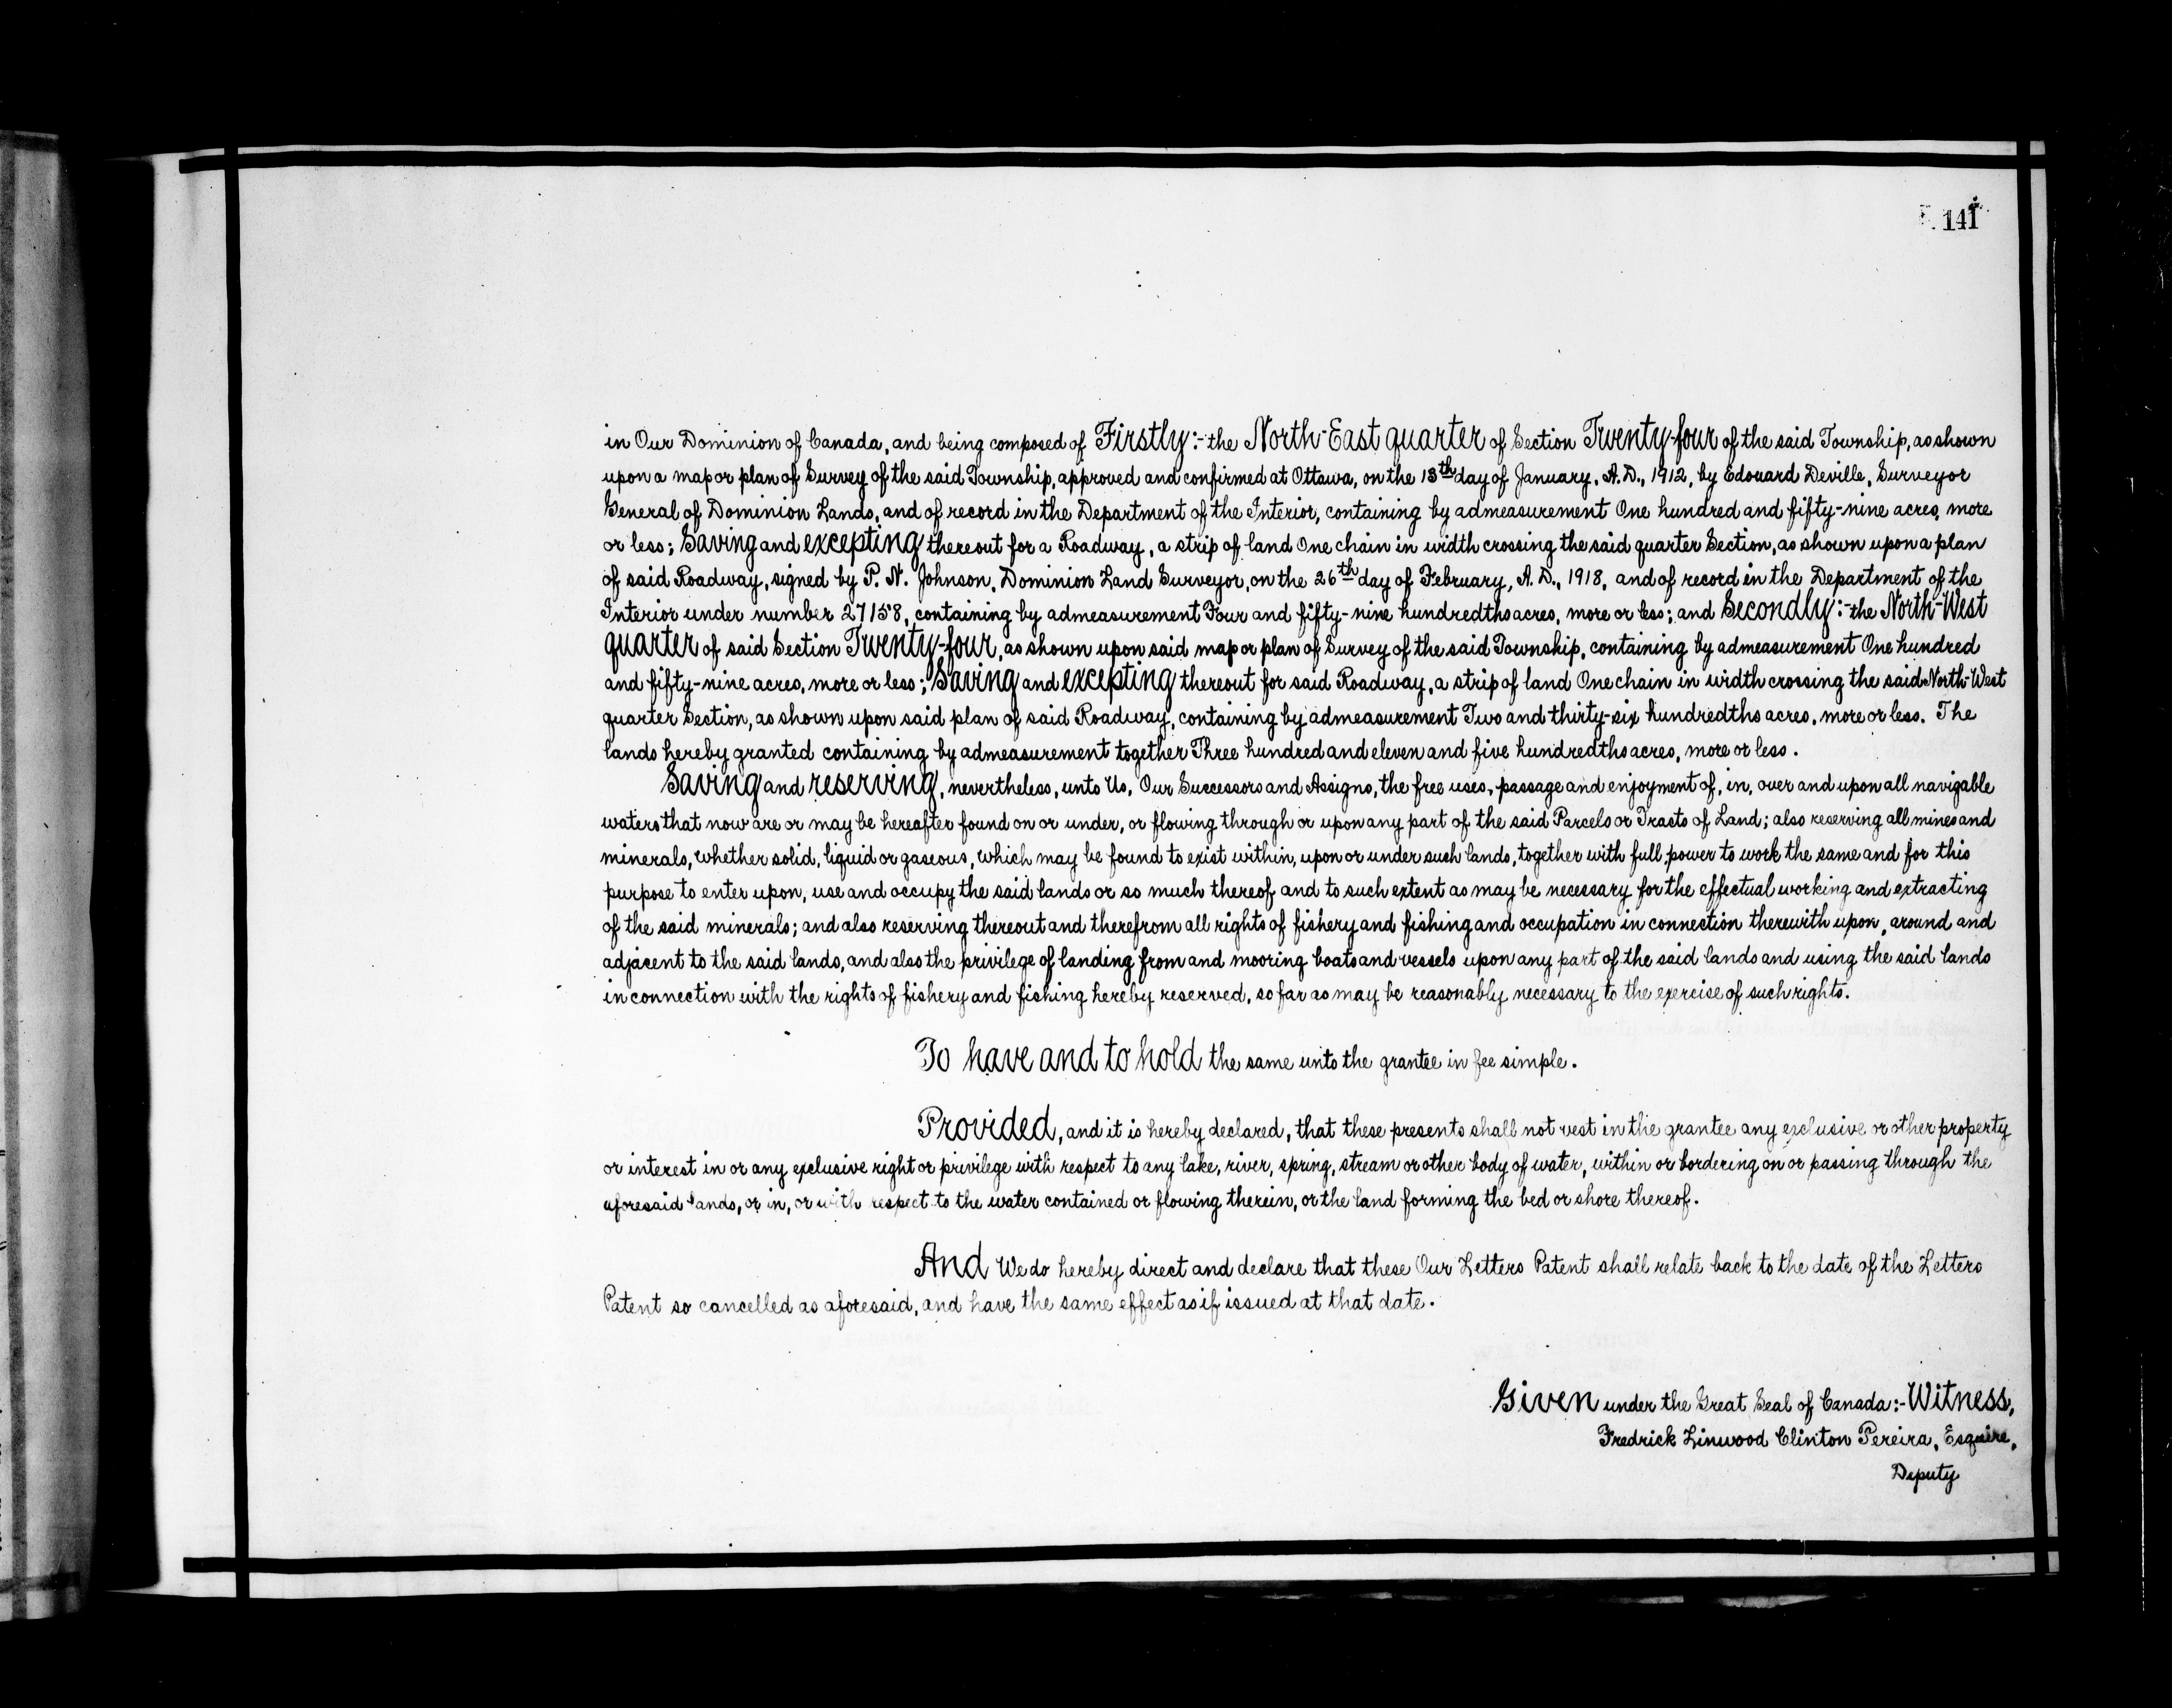 141
in Our Dominion of Canada, and being composed of Firstly:- the North-East quarter of Section Twenty-four of the said Township, as shown
upon a map or plan of Survey of the said Township, approved and confirmed at Ottawa, on the 13th day of January, A.D., 1912, by Edouard Deville, Surveyor
General of Dominion Lands, and of record in the Department of the Interior, containing by admeasurement One hundred and fifty-nine acres, more
or less; Saving and excepting thereout for a Roadway, a strip of land One chain in width crossing the said quarter Section, as shown upon a plan
of said Roadway, signed by P. N. Johnson, Dominion Land Surveyor, on the 26th day of February, A. D., 1918, and of record in the Department of the
Interior under number 27158, containing by admeasurement Four and fifty-nine hundredths acres, more or less; and Secondly:- the North-West
quarter of said Section Twenty-four, as shown upon said map or plan of Survey of the said Township, containing by admeasurement One hundred
and fifty-nine acres, more or less; Saving and excepting thereout for said Roadway, a strip of land One chain in width crossing the said North-West
quarter Section, as shown upon said plan of said Roadway, containing by admeasurement Two and thirty-six hundredths acres, more or less. The
lands hereby granted containing by admeasurement together Three hundred and eleven and five hundredths acres, more or less.
Saving and reserving, nevertheless, unto Us, Our Successors and Assigns, the free uses, passage and enjoyment of, in, over and upon all navigable
waters that now are or may be hereafter found on or under, or flowing through or upon any part of the said Parcels or Tracts of Land; also reserving all mines and
minerals, whether solid, liquid or gaseous, which may be found to exist within, upon or under such lands, together with full power to work the same and for this
purpose to enter upon, use and occupy the said lands or so much thereof and to such extent as may be necessary for the effectual working and extracting
of the said minerals; and also reserving thereout and therefrom all rights of fishery and fishing and occupation in connection therewith upon, around and
adjacent to the said lands, and also the privilege of landing from and mooring boats and vessels upon any part of the said lands and using the said lands
in connection with the rights of fishery and fishing hereby reserved, so far as may be reasonably necessary to the exercise of such rights.
To have and to hold the same unto the grantee in fee simple.
Provided, and it is hereby declared, that these presents shall not vest in the grantee any exclusive or other property
or interest in or any exclusive right or privilege with respect to any lake, river, spring, stream or other body of water, within or bordering on or passing through the
aforesaid lands, or in, or with respect to the water contained or flowing therein, or the land forming the bed or shore thereof.
And We do hereby direct and declare that these Our Letters Patent shall relate back to the date of the Letters
Patent so cancelled as aforesaid, and have the same effect as if issued at that date.
Given under the Great Seal of Canada:- Witness,
Fredrick Linwood Clinton Pereira, Esquire,
Deputy